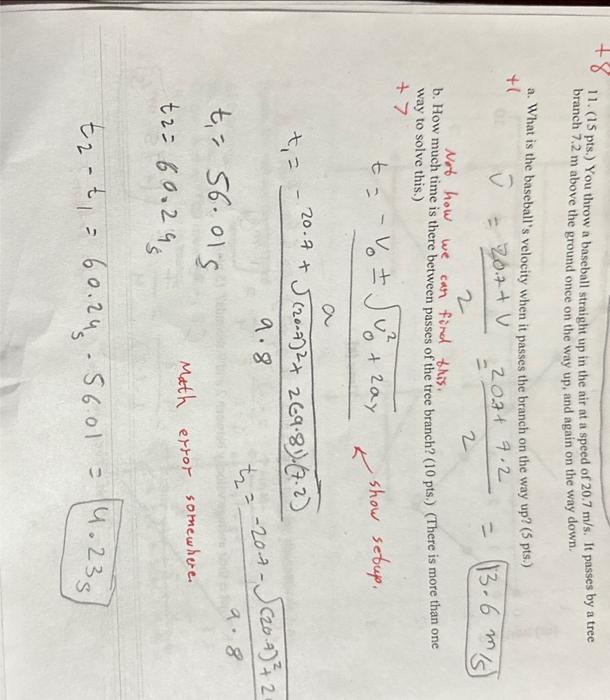 +8
11. (15 pts.) You throw a baseball straight up in the air at a speed of 20.7 m/s. It passes by a tree
branch 7.2 m above the ground once on the way up, and again on the way down.
+1
a. What is the baseball's velocity when it passes the branch on the way up? (5 pts.)
v̄ = 20.7 + V / 2 = 20.7 + 7.2 / 2 = 13.6 m/s
Not how we can find this.
b. How much time is there between passes of the tree branch? (10 pts.) (There is more than one
way to solve this.)
+7
t = -V₀ ± √V₀² + 2ay / a
← show setup.
t₁ = -20.7 + √(20.7)² + 2(-9.8)(7.2) / 9.8
t₂ = -20.7 - √(20.7)² + 2 / 9.8
t₁ = 56.01s
Math error somewhere.
t₂ = 60.24s
t₂ - t₁ = 60.24s - 56.01 = 4.23s